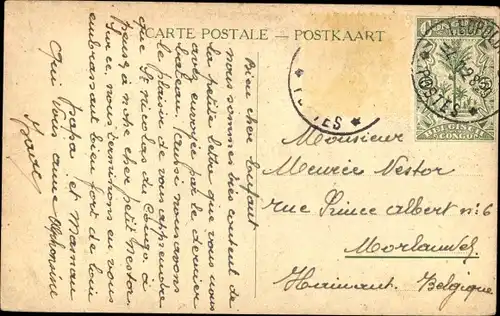 CARTE POSTALE - POSTKAART
Bien cher Enfant
nous sommes très content de
la petite lettre que vous nous
avez envoyée par le dernier
bateau. Aussi nous avons
le plaisir de vous apprendre
que St nicolas du Congo à
pensez à notre cher petit nestor
Sur ce, nous terminons en vous
embrassant bien fort de loin
papa et Maman
Qui vous aime Alphonsine
POSTES
LEOPOLD
POSTES
BELGISCH
CONGO
Monsieur
Meurée Nestor
rue Prince albert n° 6
Morlanwelz
Hainaut. Belgique